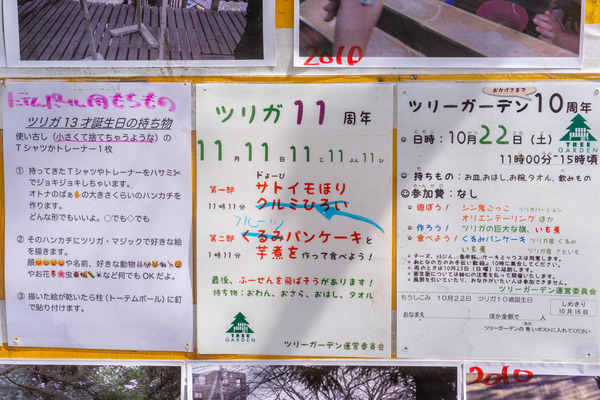 2010
ツリガ13才誕生日の持ち物
使い古し（小さくて捨てちゃうような）の
Tシャツかトレーナー1枚
① 持ってきたTシャツやトレーナーをハサミ✂
でジョキジョキしちゃいます。
オトナのぱぁ✋の大きさくらいのハンカチを
作ります。
どんな形でもいいよ。○でも◇でも
② そのハンカチにツリガ・マジックで好きな絵
を描きます。
や名前、好きな動物
やお花
など何でもOKだよ。
③ 描いた絵が乾いたら柱（トーテムポール）に釘
で貼り付けます。
ツリガ 11 周年
11月11日11じ11ふん11び
第一部
11時11分
どようび
サトイモほり
クルミひろい
フルーツ
第二部
11時11分
くるみパンケーキと
芋煮を作って食べよう！
最後、ふーせんを飛ばそうがあります！
持ち物：おわん、おさら、おはし、タオル
TREE
GARDEN
ツリーガーデン運営委員会
おかげさまで
ツリーガーデン10周年
日時：10月22日（土）
11時00分~15時頃
TREE
GARDEN
持ちもの：お皿,おはし,お椀,タオル,飲みもの
参加費：なし
遊ぼう！ シン鬼ごっこ ツリガバージョン
オリエンテーリング ほか
作ろう！ ツリガの巨大な旗、いも煮
食べよう！ くるみパンケーキ ツリガ産 くるみ
いも煮 ツリガ産 さといも
雨のときは10月23日（日曜）に延期します。
ツリーガーデン運営委員会
もうしこみ 10月22日 ツリガ10歳誕生日
しめきり
10月16日
おなまえ ほか全部で 人
ツリーガーデンの青いポストに入れてください
2010